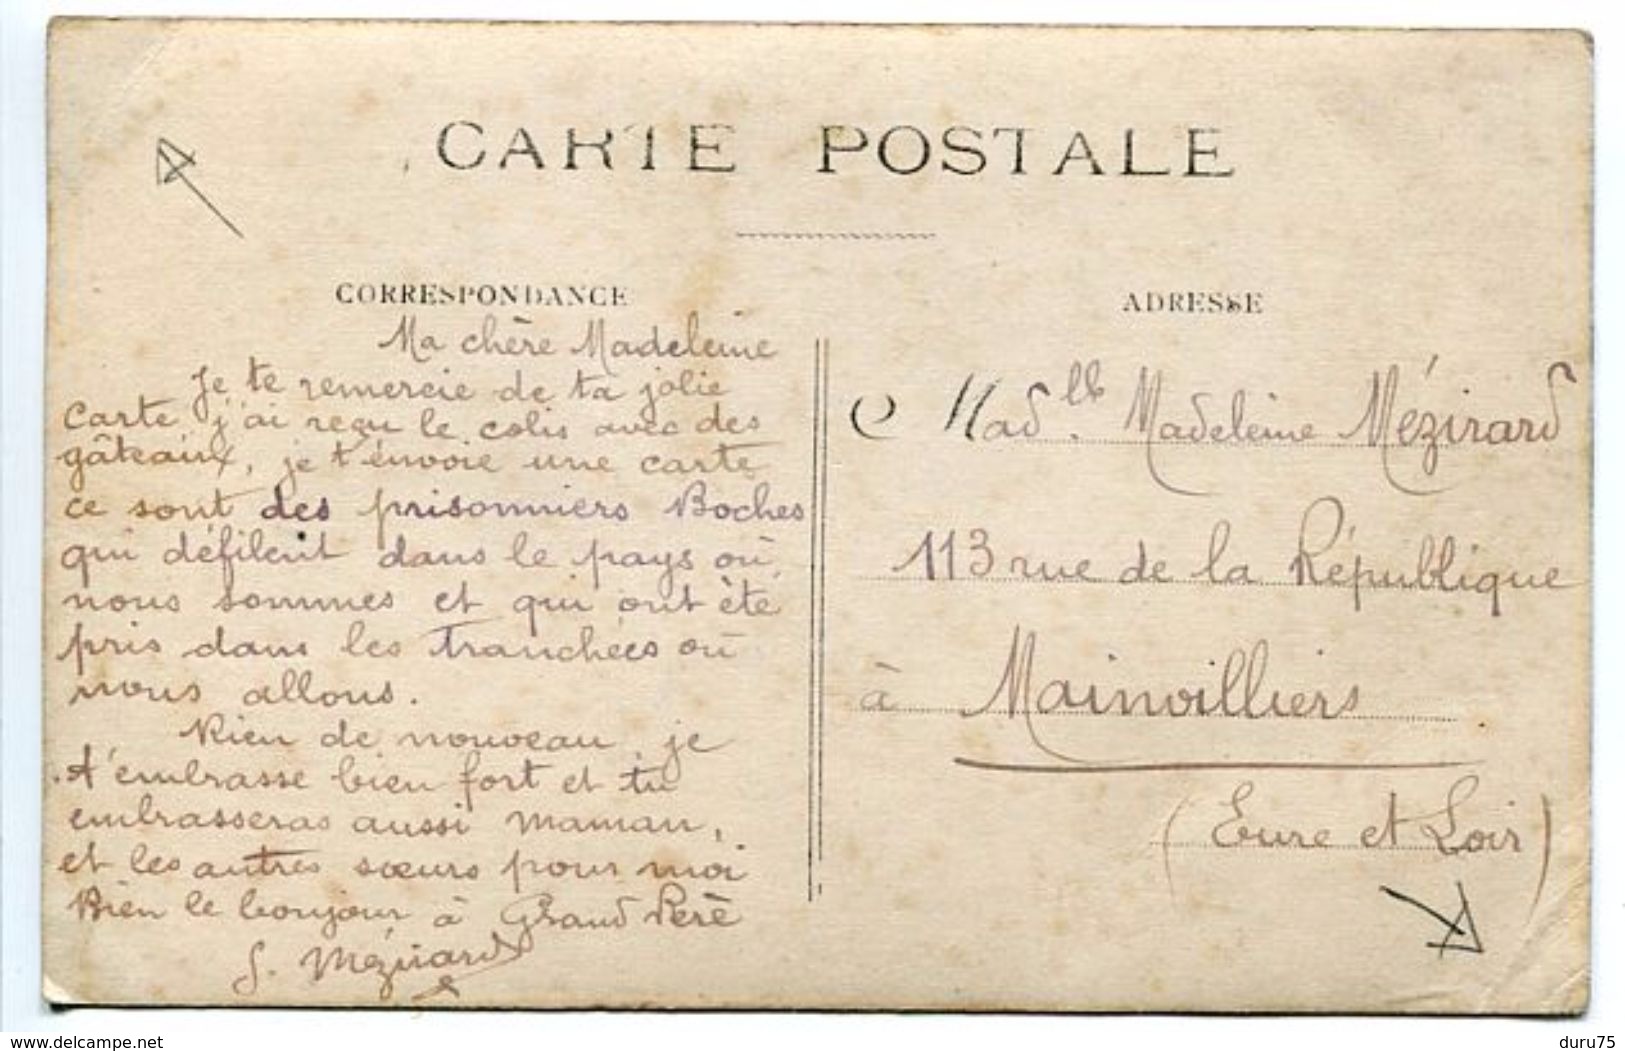 CARTE POSTALE
CORRESPONDANCE
Ma chère Madeleine
Je te remercie de ta jolie
Carte, j'ai reçu le colis avec des
gâteaux, je t'envoie une carte
ce sont des prisonniers Boches
qui défilent dans le pays où
nous sommes et qui ont été
pris dans les tranchées où
nous allons.
Rien de nouveau, je
t'embrasse bien fort et tu
embrasseras aussi maman,
et les autres sœurs pour moi
Bien le bonjour à Grand Père
G. Mézirard
ADRESSE
Mad.lle Madeleine Mézirard
113 rue de la République
à Mainvilliers
(Eure et Loir)
delcampe.net
duru75